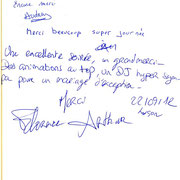 Encore merci
Merci beaucoup super journée
Une excellente soirée, un grand merci
Des animations au top, un DJ hyper sympa
pour un mariage d'exception.
Merci 22/09/12
Florence Arthur